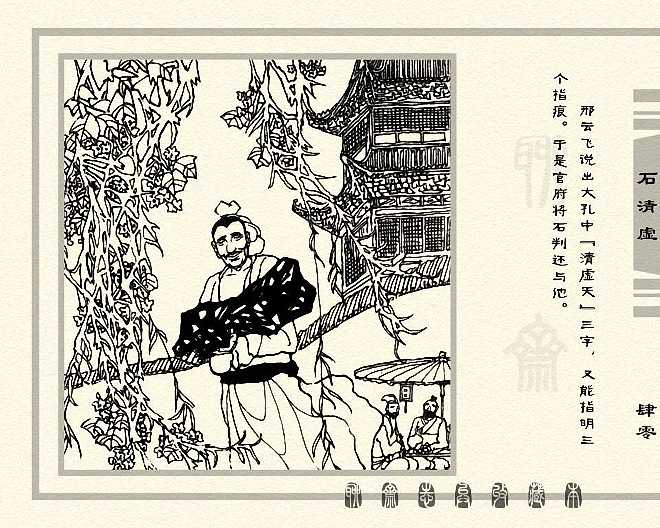 邢云飞说出大孔中「清虚天」三字，又能指明三
个指痕。于是官府将石判还与他。
石清虚
肆零
聊斋志异收藏本